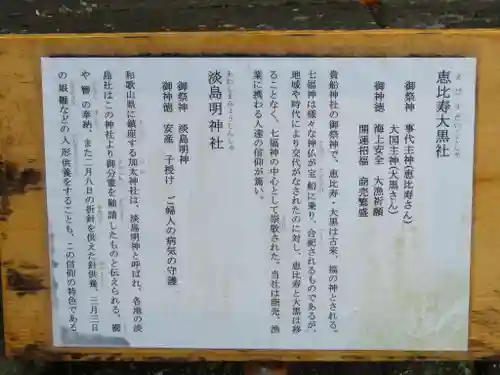 恵比寿大黒社
えびすだいこくしゃ
御祭神 事代主神(恵比寿さん)
大国主神(大黒さん)
御神徳 海上安全 大漁祈願
開運招福 商売繁盛
貴船神社の御祭神で、恵比寿・大黒は古来、福の神とされる。
七福神は様々な神仏が宝船に乗り、合祀されるものであるが、
地域や時代により交代がなされたのに対し、恵比寿と大黒は移
ることなく、七福神の中心として崇敬された。当社は商売、漁
業に携わる人達の信仰が篤い。
淡島明神社
あわしまみょうじんしゃ
御祭神 淡島明神
御神徳 安産 子授け ご婦人の病気の守護
和歌山県に鎮座する加太神社は、淡島明神と呼ばれ、各地の淡
島社はこの神社より御分霊を勧請したものと伝えられる。櫛
や簪の奉納、また二月八日の折針を供えた針供養、三月三日
の雛などの人形供養をすることも、この信仰の特色である。